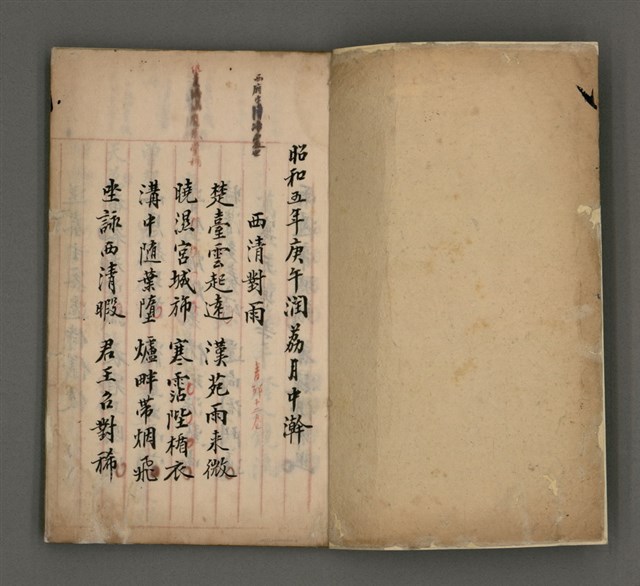 昭和五年庚午潤荔月中澣
西清對雨
楚臺雲起遠 漢苑雨来微
曉濕宮城斾 寒霑陛楯衣
溝中随葉墮 爐畔帶烟飛
坐詠西清暇 君王召對稀